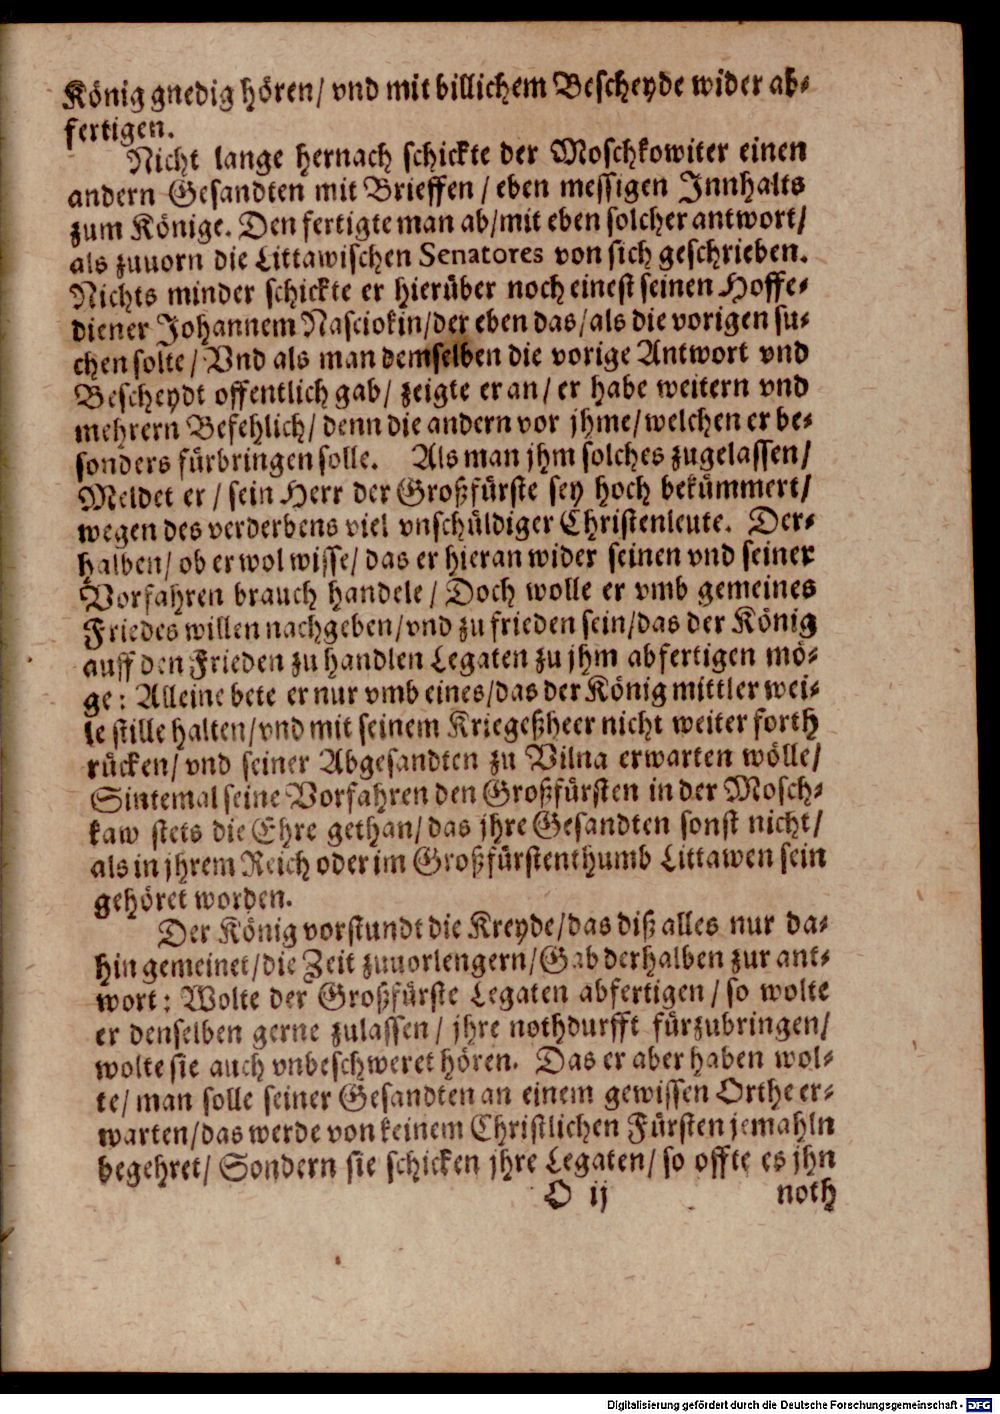 König gnedig hören/ vnd mit billichem Bescheyde wider ab-
fertigen.
Nicht lange hernach schickte der Moschkowiter einen
andern Gesandten mit Brieffen / eben messigen Innhalts
zum Könige. Den fertigte man ab/mit eben solcher antwort/
als zuuorn die Littawischen Senatores von sich geschrieben.
Nichts minder schickte er hierüber noch einest seinen Hoffe-
diener Johannem Nasciokin/der eben das/als die vorigen su-
chen solte/ Vnd als man demselben die vorige Antwort vnd
Bescheydt offentlich gab/ zeigte er an/ er habe weitern vnd
mehrern Befehlich/ denn die andern vor jhme/welchen er be-
sonders fürbringen solle. Als man jhm solches zugelassen/
Meldet er / sein Herr der Großfürste sey hoch bekümmert/
wegen des verderbens viel vnschüldiger Christenleute. Der-
halben/ ob er wol wisse/ das er hieran wider seinen vnd seiner
Vorfahren brauch handele / Doch wolle er vmb gemeines
Friedes willen nachgeben/vnd zu frieden sein/das der König
auff den Frieden zu handlen Legaten zu jhm abfertigen mö-
ge: Alleine bete er nur vmb eines/das der König mittler wei-
le stille halten/vnd mit seinem Kriegeßheer nicht weiter forth
rücken/ vnd seiner Abgesandten zu Vilna erwarten wölle/
Sintemal seine Vorfahren den Großfürsten in der Mosch-
kaw stets die Ehre gethan/das jhre Gesandten sonst nicht/
als in jhrem Reich oder im Großfürstenthumb Littawen sein
gehöret worden.
Der König vorstundt die Kreyde/das diß alles nur da-
hin gemeinet/die Zeit zuuorlengern/Gab derhalben zur ant-
wort: Wolte der Großfürste Legaten abfertigen / so wolte
er denselben gerne zulassen/ jhre nothdurfft fürzubringen/
wolte sie auch vnbeschweret hören. Das er aber haben wol-
te/ man solle seiner Gesandten an einem gewissen Orthe er-
warten/das werde von keinem Christlichen Fürsten jemahln
begehret/ Sondern sie schicken jhre Legaten/ so offte es jhn
O ij noth
Digitalisierung gefördert durch die Deutsche Forschungsgemeinschaft - DFG